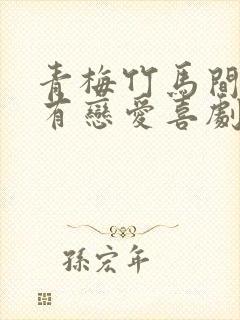 青梅竹馬間
有戀愛喜劇
孫宏年